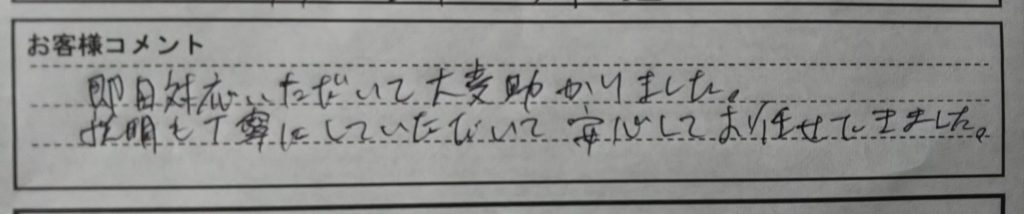 お客様コメント
即日対応いただいて大変助かりました。
説明も丁寧にしていただいて安心してお任せできました。